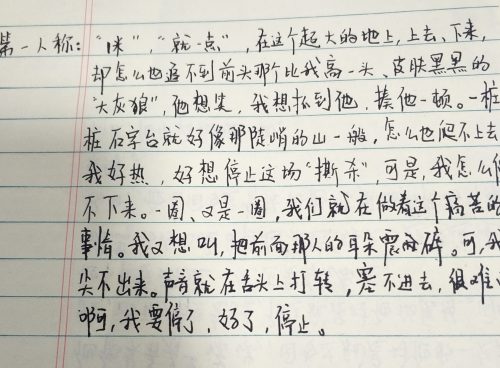 第一人称：“咪”，“就一点”，在这个起大的地上，上去、下来，
却怎么也追不到前头那个比我高一头、皮肤黑黑的
“大灰狼”，他想笑，我想抓到他，揍他一顿。一桩
桩石字台就好像那陡峭的山一般，怎么也爬不上去
我好热，好想停止这场“撕杀”，可是，我怎么
不下来。一圈、又是一圈，我们就在做着这个痛苦的
事情。我又想叫，把前面那人的耳朵震碎。可，我
尖不出来。声音就在舌头上打转，塞不进去，很难
啊可，我要停了，好了，停止。